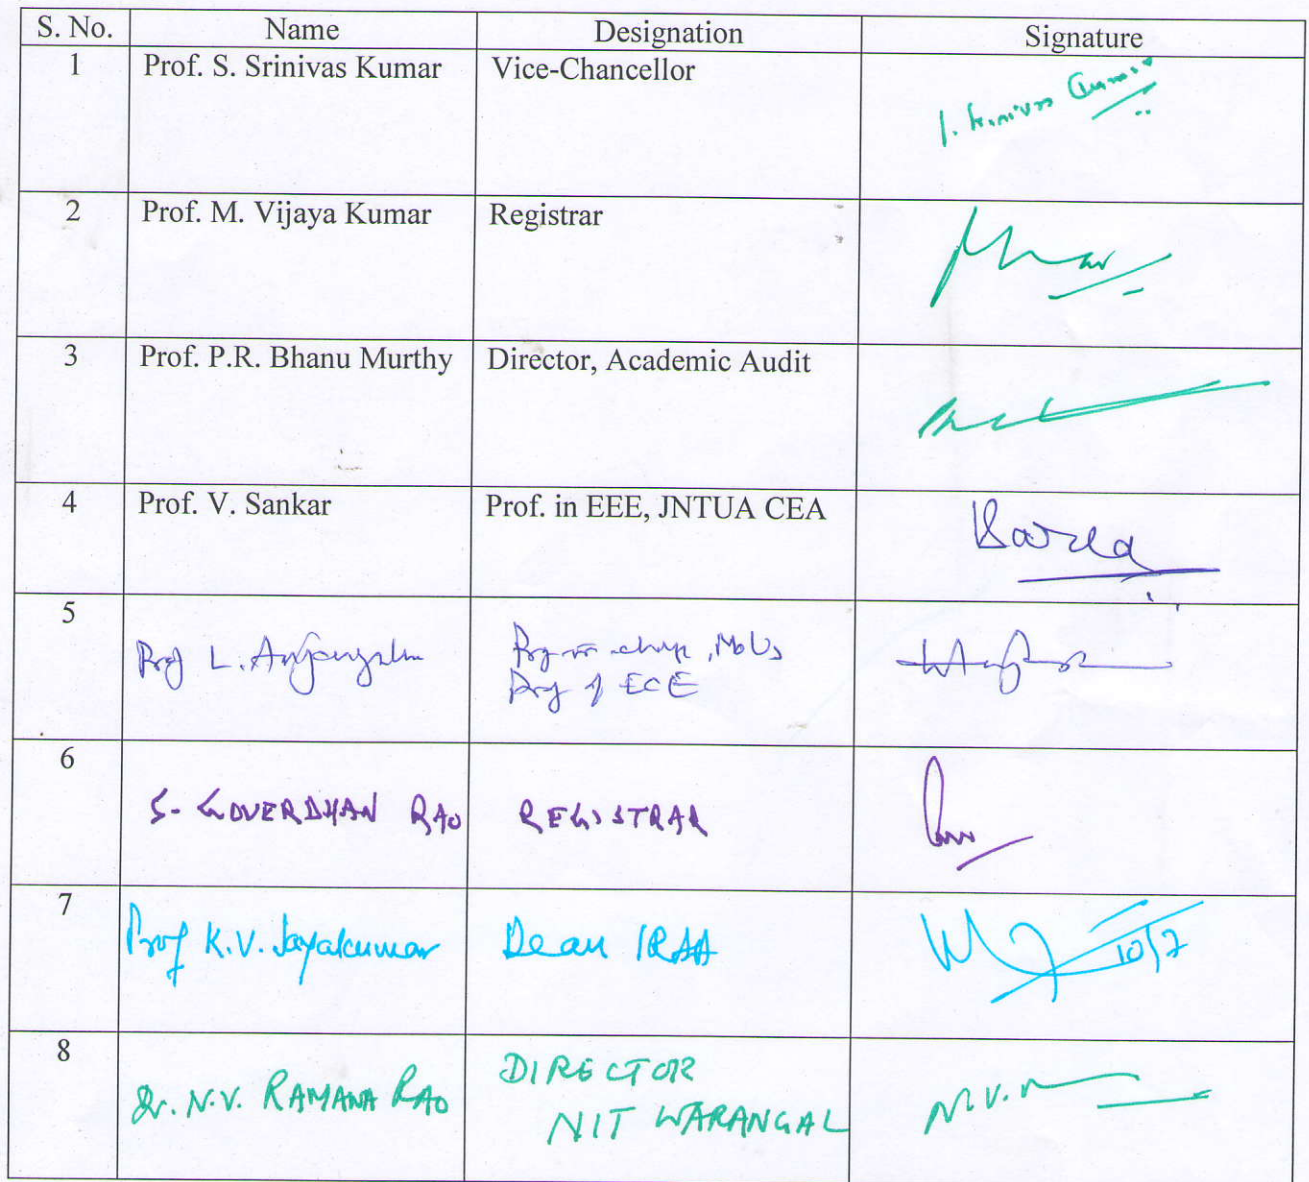 S. No. Name Designation Signature
1 Prof. S. Srinivas Kumar Vice-Chancellor
2 Prof. M. Vijaya Kumar Registrar
3 Prof. P.R. Bhanu Murthy Director, Academic Audit
4 Prof. V. Sankar Prof. in EEE, JNTUA CEA
5
Prof L. MoUs
Prof of ECE
6
S. GOVERDHAN RAO REGISTRAR
7
Prof K.V. Jayakumar Dean IRAA 10/7
8
DIRECTOR
Dr. N.V. RAMANA RAO NIT WARANGAL N.V.